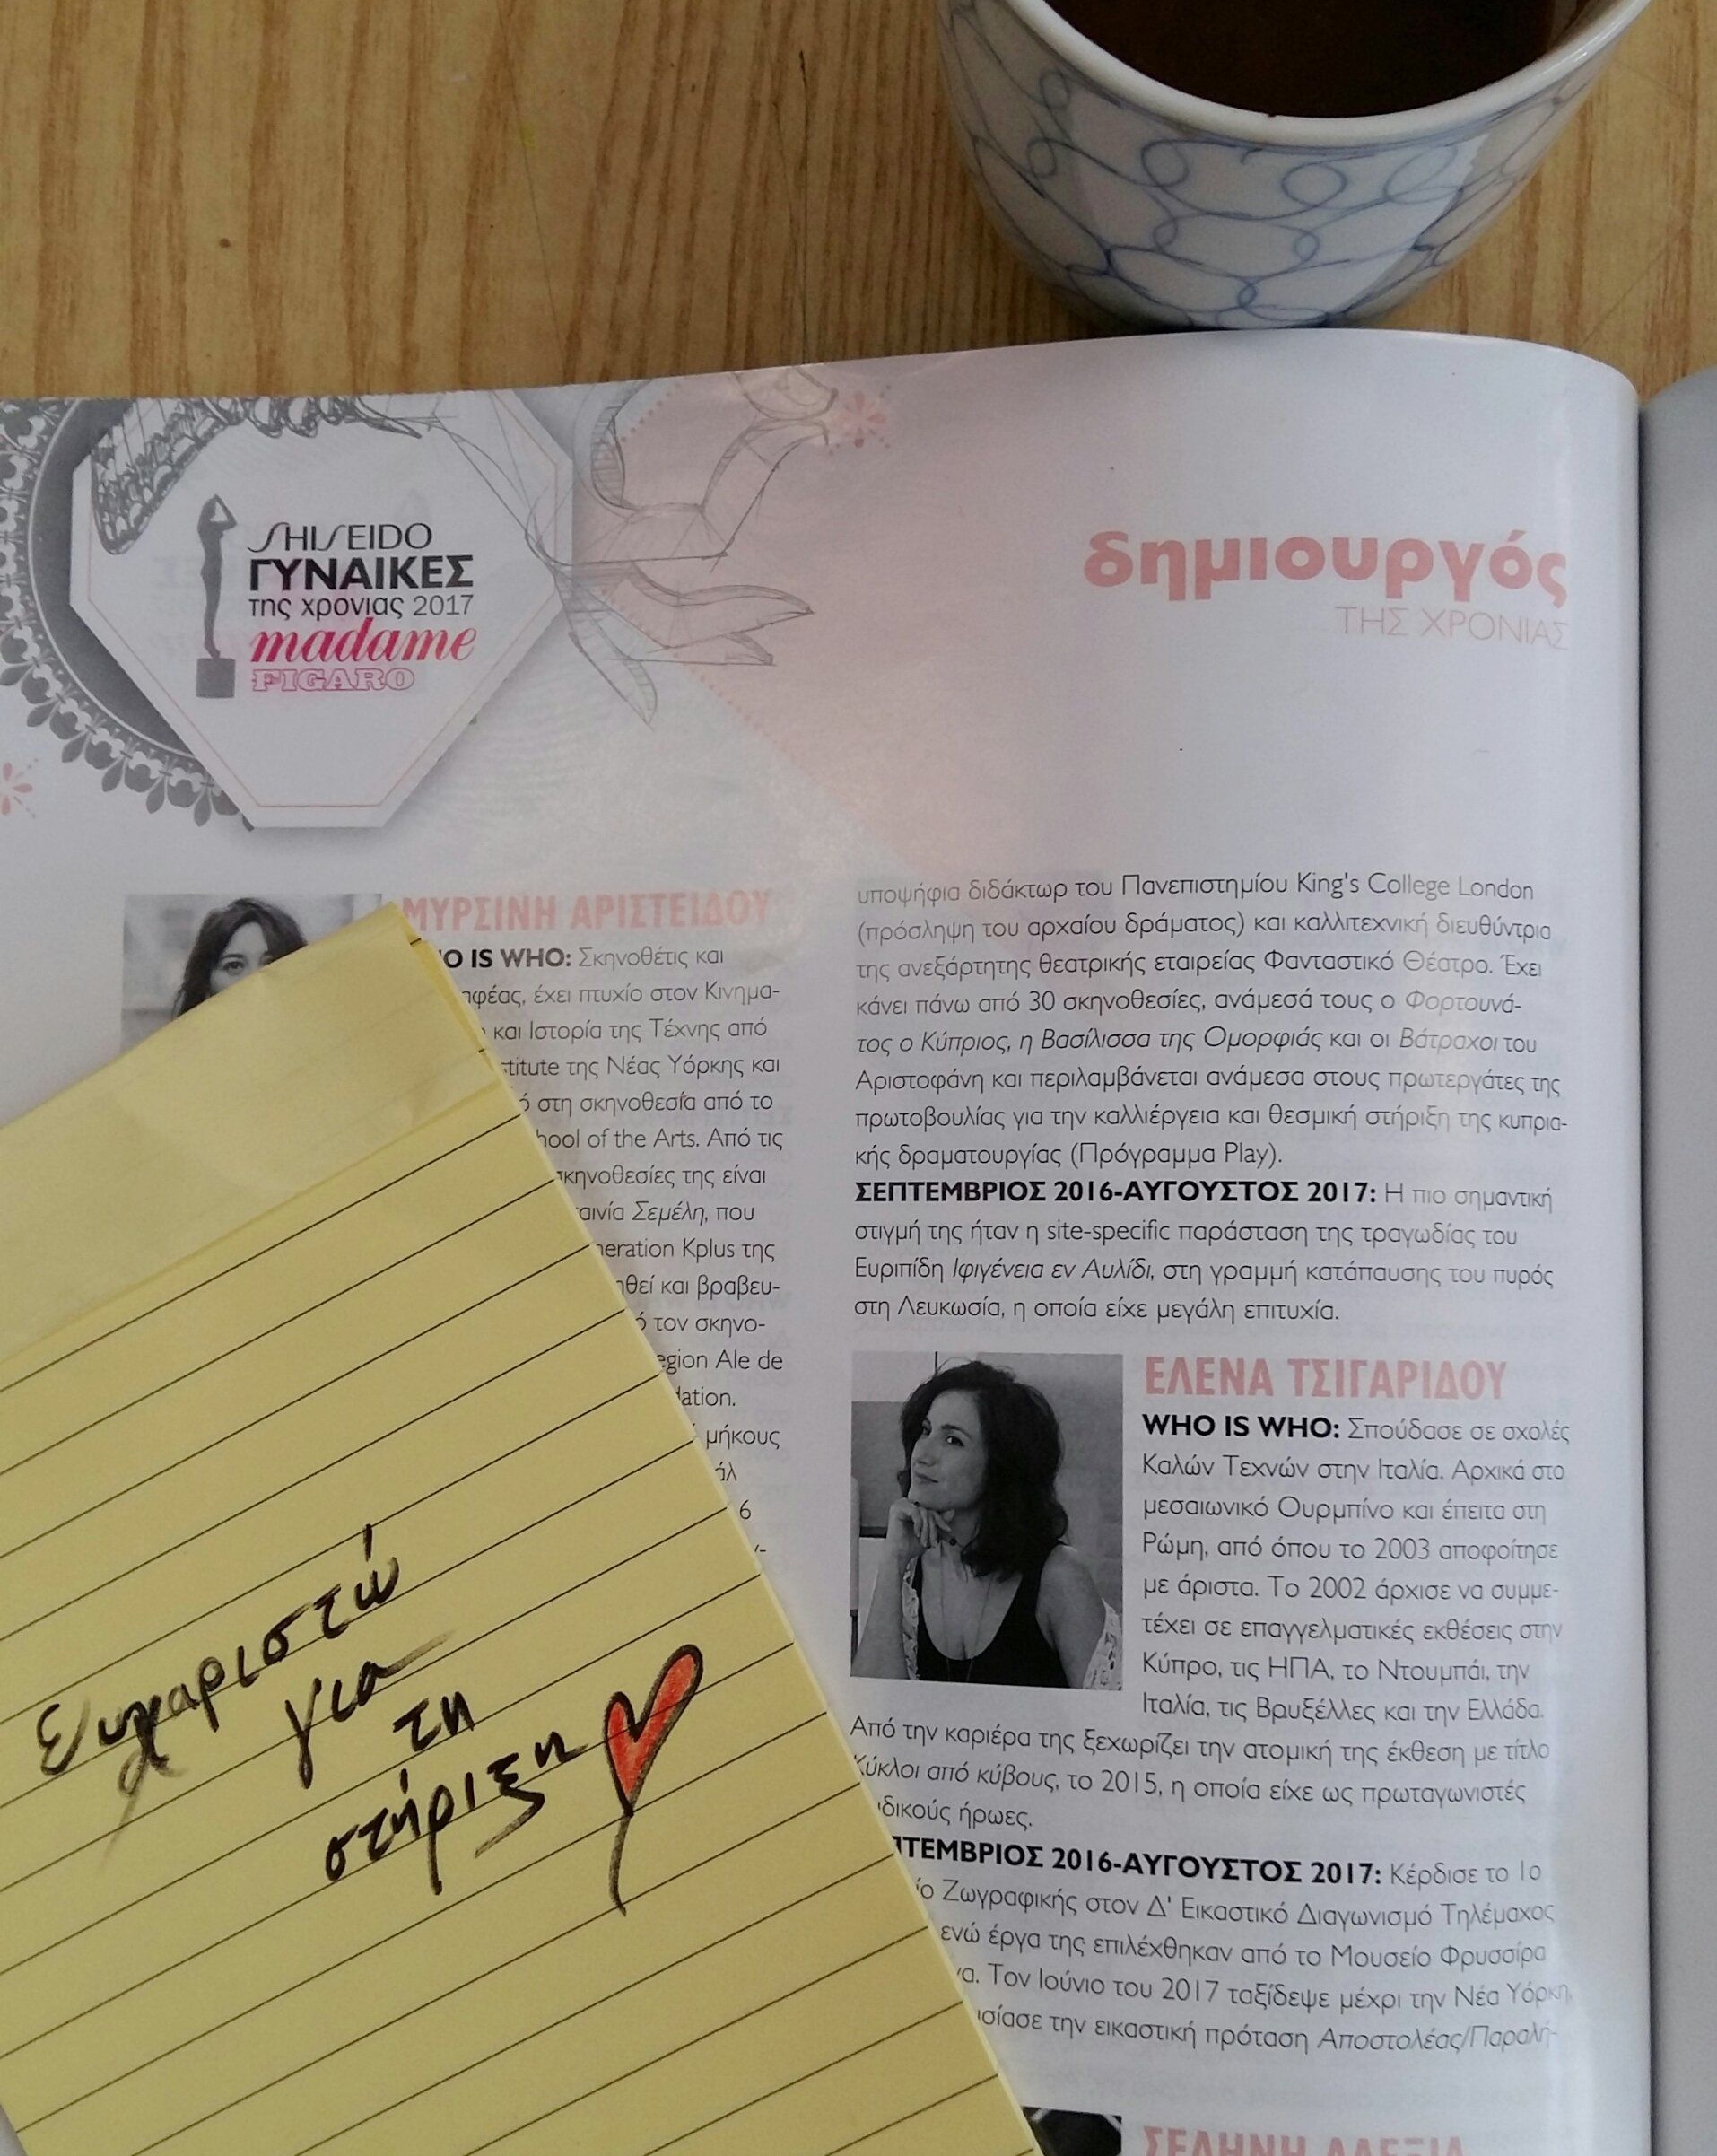 SHISEIDO
ΓΥΝΑΙΚΕΣ
της χρονιας 2017
madame
FIGARO
δημιουργός
ΤΗΣ ΧΡΟΝΙΑΣ
ΜΥΡΣΙΝΗ ΑΡΙΣΤΕΙΔΟΥ
IS WHO: Σκηνοθέτις και
έχει πτυχίο στον Κινημα-
και Ιστορία της Τέχνης από
της Νέας Υόρκης και
στη σκηνοθεσία από το
of the Arts. Από τις
της είναι
Σεμέλη, που
Kplus της
και βραβευ-
τον σκηνο-
Ale de
μήκους
6
υποψήφια διδάκτωρ του Πανεπιστημίου King's College London
(πρόσληψη του αρχαίου δράματος) και καλλιτεχνική διευθύντρια
της ανεξάρτητης θεατρικής εταιρείας Φανταστικό Θέατρο. Έχει
κάνει πάνω από 30 σκηνοθεσίες, ανάμεσά τους ο Φορτουνά-
τος ο Κύπριος, η Βασίλισσα της Ομορφιάς και οι Βάτραχοι του
Αριστοφάνη και περιλαμβάνεται ανάμεσα στους πρωτεργάτες της
πρωτοβουλίας για την καλλιέργεια και θεσμική στήριξη της κυπρια-
κής δραματουργίας (Πρόγραμμα Play).
ΣΕΠΤΕΜΒΡΙΟΣ 2016-ΑΥΓΟΥΣΤΟΣ 2017: Η πιο σημαντική
στιγμή της ήταν η site-specific παράσταση της τραγωδίας του
Ευριπίδη Ιφιγένεια εν Αυλίδι, στη γραμμή κατάπαυσης του πυρός
στη Λευκωσία, η οποία είχε μεγάλη επιτυχία.
ΕΛΕΝΑ ΤΣΙΓΑΡΙΔΟΥ
WHO IS WHO: Σπούδασε σε σχολές
Καλών Τεχνών στην Ιταλία. Αρχικά στο
μεσαιωνικό Ουρμπίνο και έπειτα στη
Ρώμη, από όπου το 2003 αποφοίτησε
με άριστα. Το 2002 άρχισε να συμμε-
τέχει σε επαγγελματικές εκθέσεις στην
Κύπρο, τις ΗΠΑ, το Ντουμπάι, την
Ιταλία, τις Βρυξέλλες και την Ελλάδα.
Από την καριέρα της ξεχωρίζει την ατομική της έκθεση με τίτλο
Κύκλοι από κύβους, το 2015, η οποία είχε ως πρωταγωνιστές
ήρωες.
2016-ΑΥΓΟΥΣΤΟΣ 2017: Κέρδισε το 1ο
Ζωγραφικής στον Δ' Εικαστικό Διαγωνισμό Τηλέμαχος
ενώ έργα της επιλέχθηκαν από το Μουσείο Φρυσσίρα
Τον Ιούνιο του 2017 ταξίδεψε μέχρι την Νέα Υόρκη,
την εικαστική πρόταση Αποστολέας/Παραλή-
Ευχαριστώ
για
τη
στήριξη